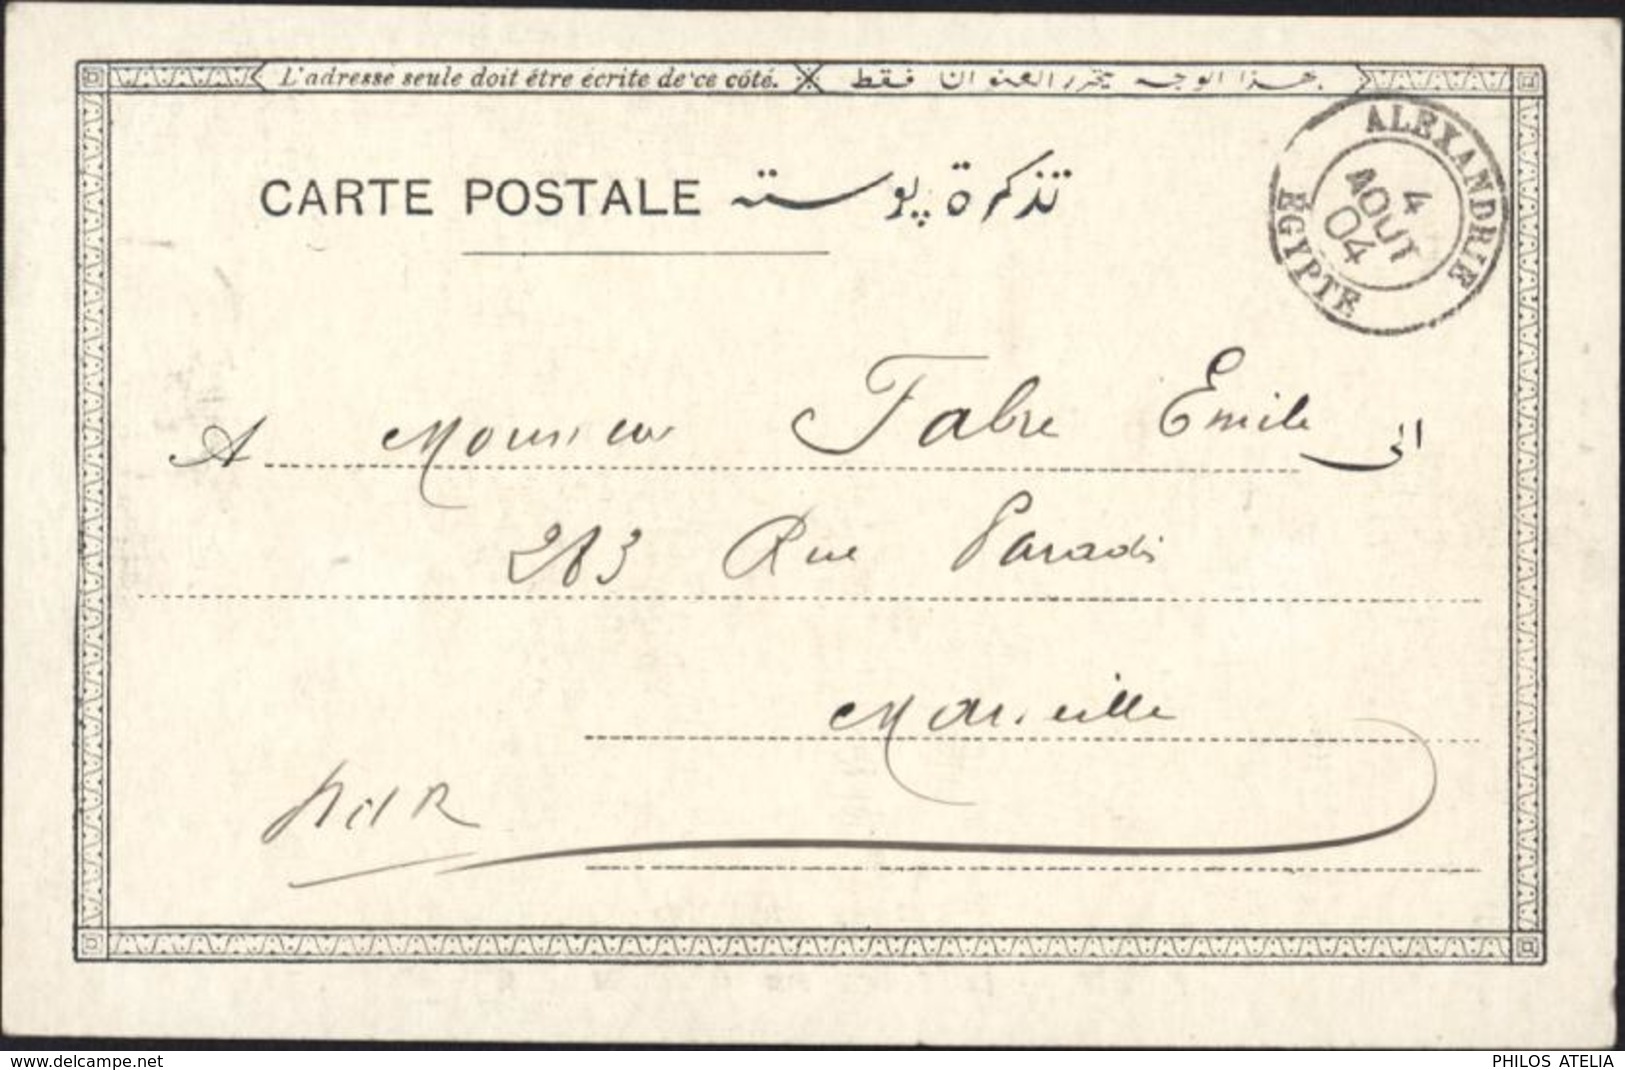 L'adresse seule doit être écrite de ce côté. هذا الوجه يحرر العنوان فقط
CARTE POSTALE تذكرة پوسته
ALEXANDRIE
4
AOUT
04
EGYPTE
A Monsieur Fabre Emile الى
283 Rue Paradis
Marseille
www.delcampe.net
PHILOS ATELIA